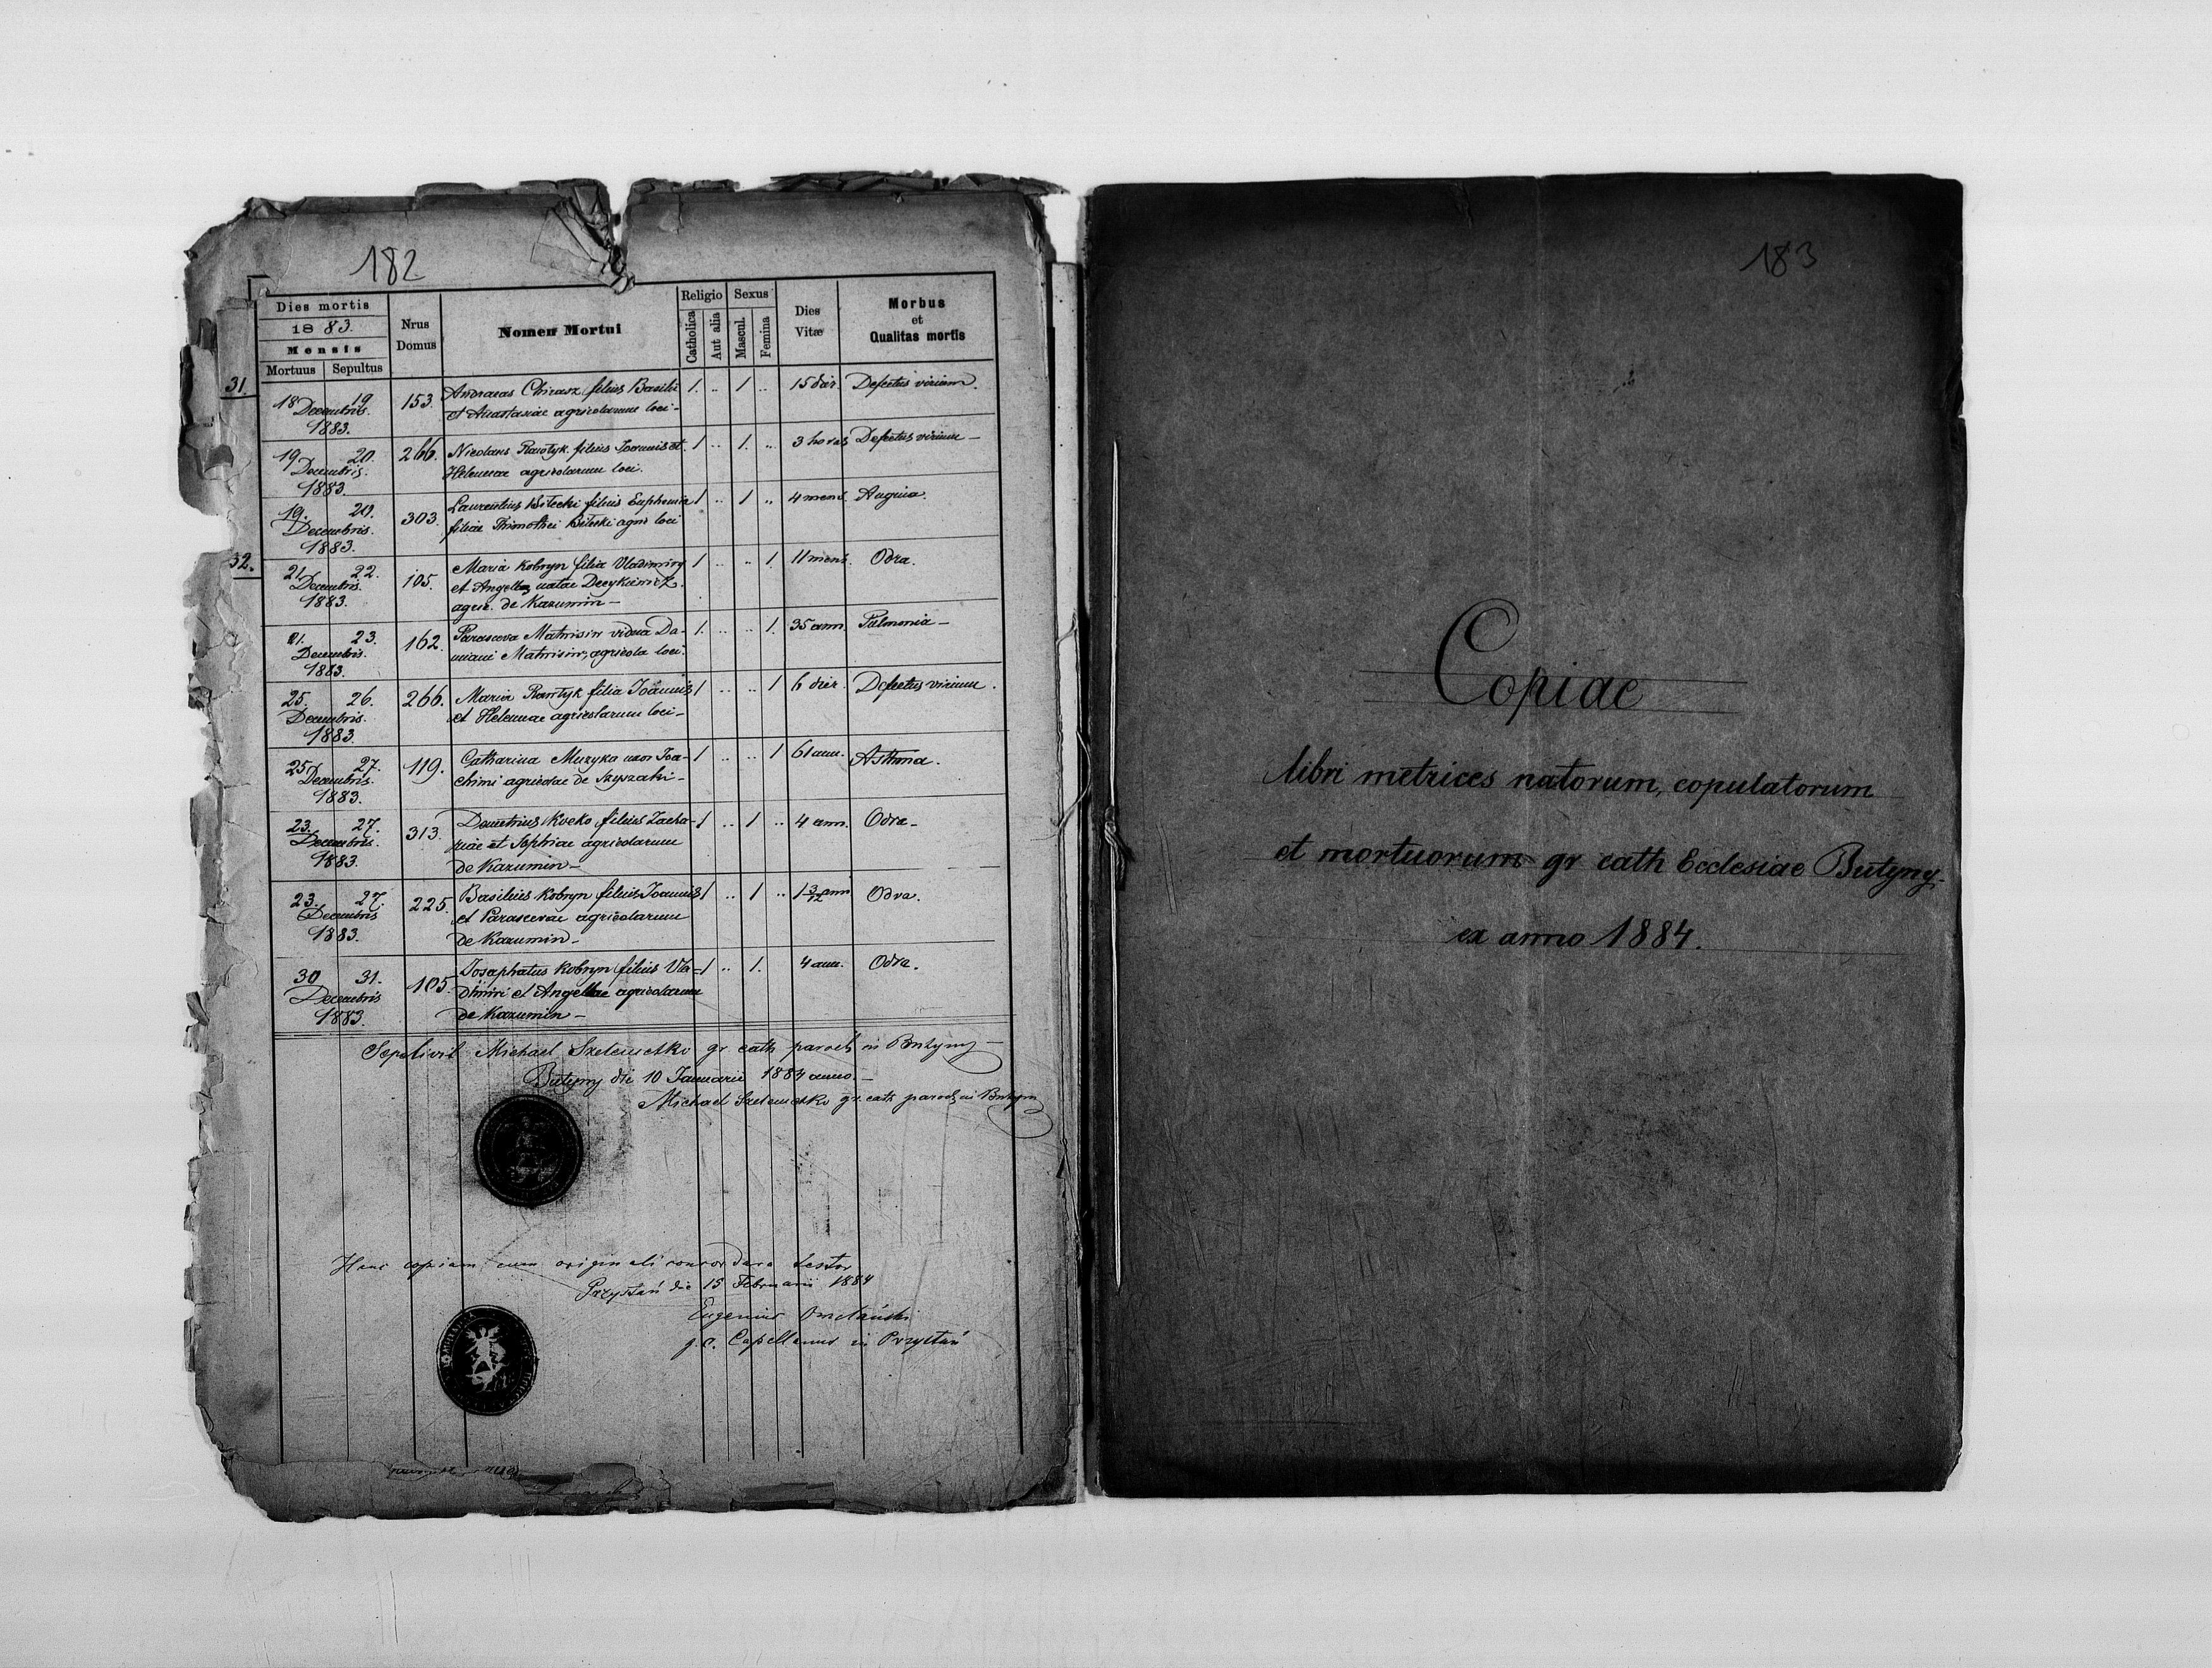 182
Dies mortis
1883.
Mensis
Mortuus Sepultus
Nrus Domus
Nomen Mortui
Religio
Catholica
Aut alia
Sexus
Mascul.
Femina
Dies Vitæ
Morbus et Qualitas mortis
31.
18 19 153. Andraeas filius Basilii 1. .. 1 .. 15 dier. Defectus virium.
Decembris. et Anastasiae agricolarum loci-
1883.
19 20. 266. Nicolaus filius Joannis et 1 .. 1. .. 3 horas Defectus virium-
Decembris. Helenae agricolarum loci.
1883.
19. 20. 303. Laurentius Bilecki filius Euphemia 1 .. 1 .. 4 mens. Angina.
Decembris. filiae Thimothei Bilecki agric loci
1883.
32.
21 22. 105. Maria Kobryn filia Vladimiry 1 .. .. 1 11 mens. Odra.
Decembris. et Angellae natae
1883. agric. de Kazumin-
21. 23. 162. Parasceva Matwisiw vidua Da- 1. .. .. 1. 35 ann. Pulmonia-
Decembris. miani Matwisiw, agricola loci.
1883.
25. 26. 266. Maria filia Joannis 1 .. .. 1 6 dier. Defectus virium.
Decembris. et Helenae agricolarum loci-
1883.
25 27. 119. Catharina Muzyka uxor Joa- 1 .. .. 1 61 ann. Asthma.
Decembris. chimi agricolae de
1883.
23. 27. 313. Demetrius filius Zacha- 1 .. 1 .. 4 ann. Odra-
Decembris. riae et Sophiae agricolarum
1883. de Kazumin-
23. 27. 225. Basilius Kobryn filius Joannis 1 .. 1 .. 1 3/12 ann Odra.
Decembris et Parascevae agricolarum
1883. de Kazumin-
30 31. 105. Josaphatus Kobryn filius Vla- 1 .. 1. 4 ann. Odra.
Decembris dimiri et Angellae agricolarum
1883. de Kazumin-
Sepelivit Michael gr cath paroch in Butyny-
Butyny die 10 Januarii 1884 anno.-
Michael gr. cath paroch in Butyny
Hanc copiam cum originali concordare testor
Przystań die 15 Februarii 1884
Eugenius
g. c. Capellanus in Przystań
183
Copiae
libri metrices natorum, copulatorum
et mortuorum gr cath Ecclesiae Butyny-
ex anno 1884.